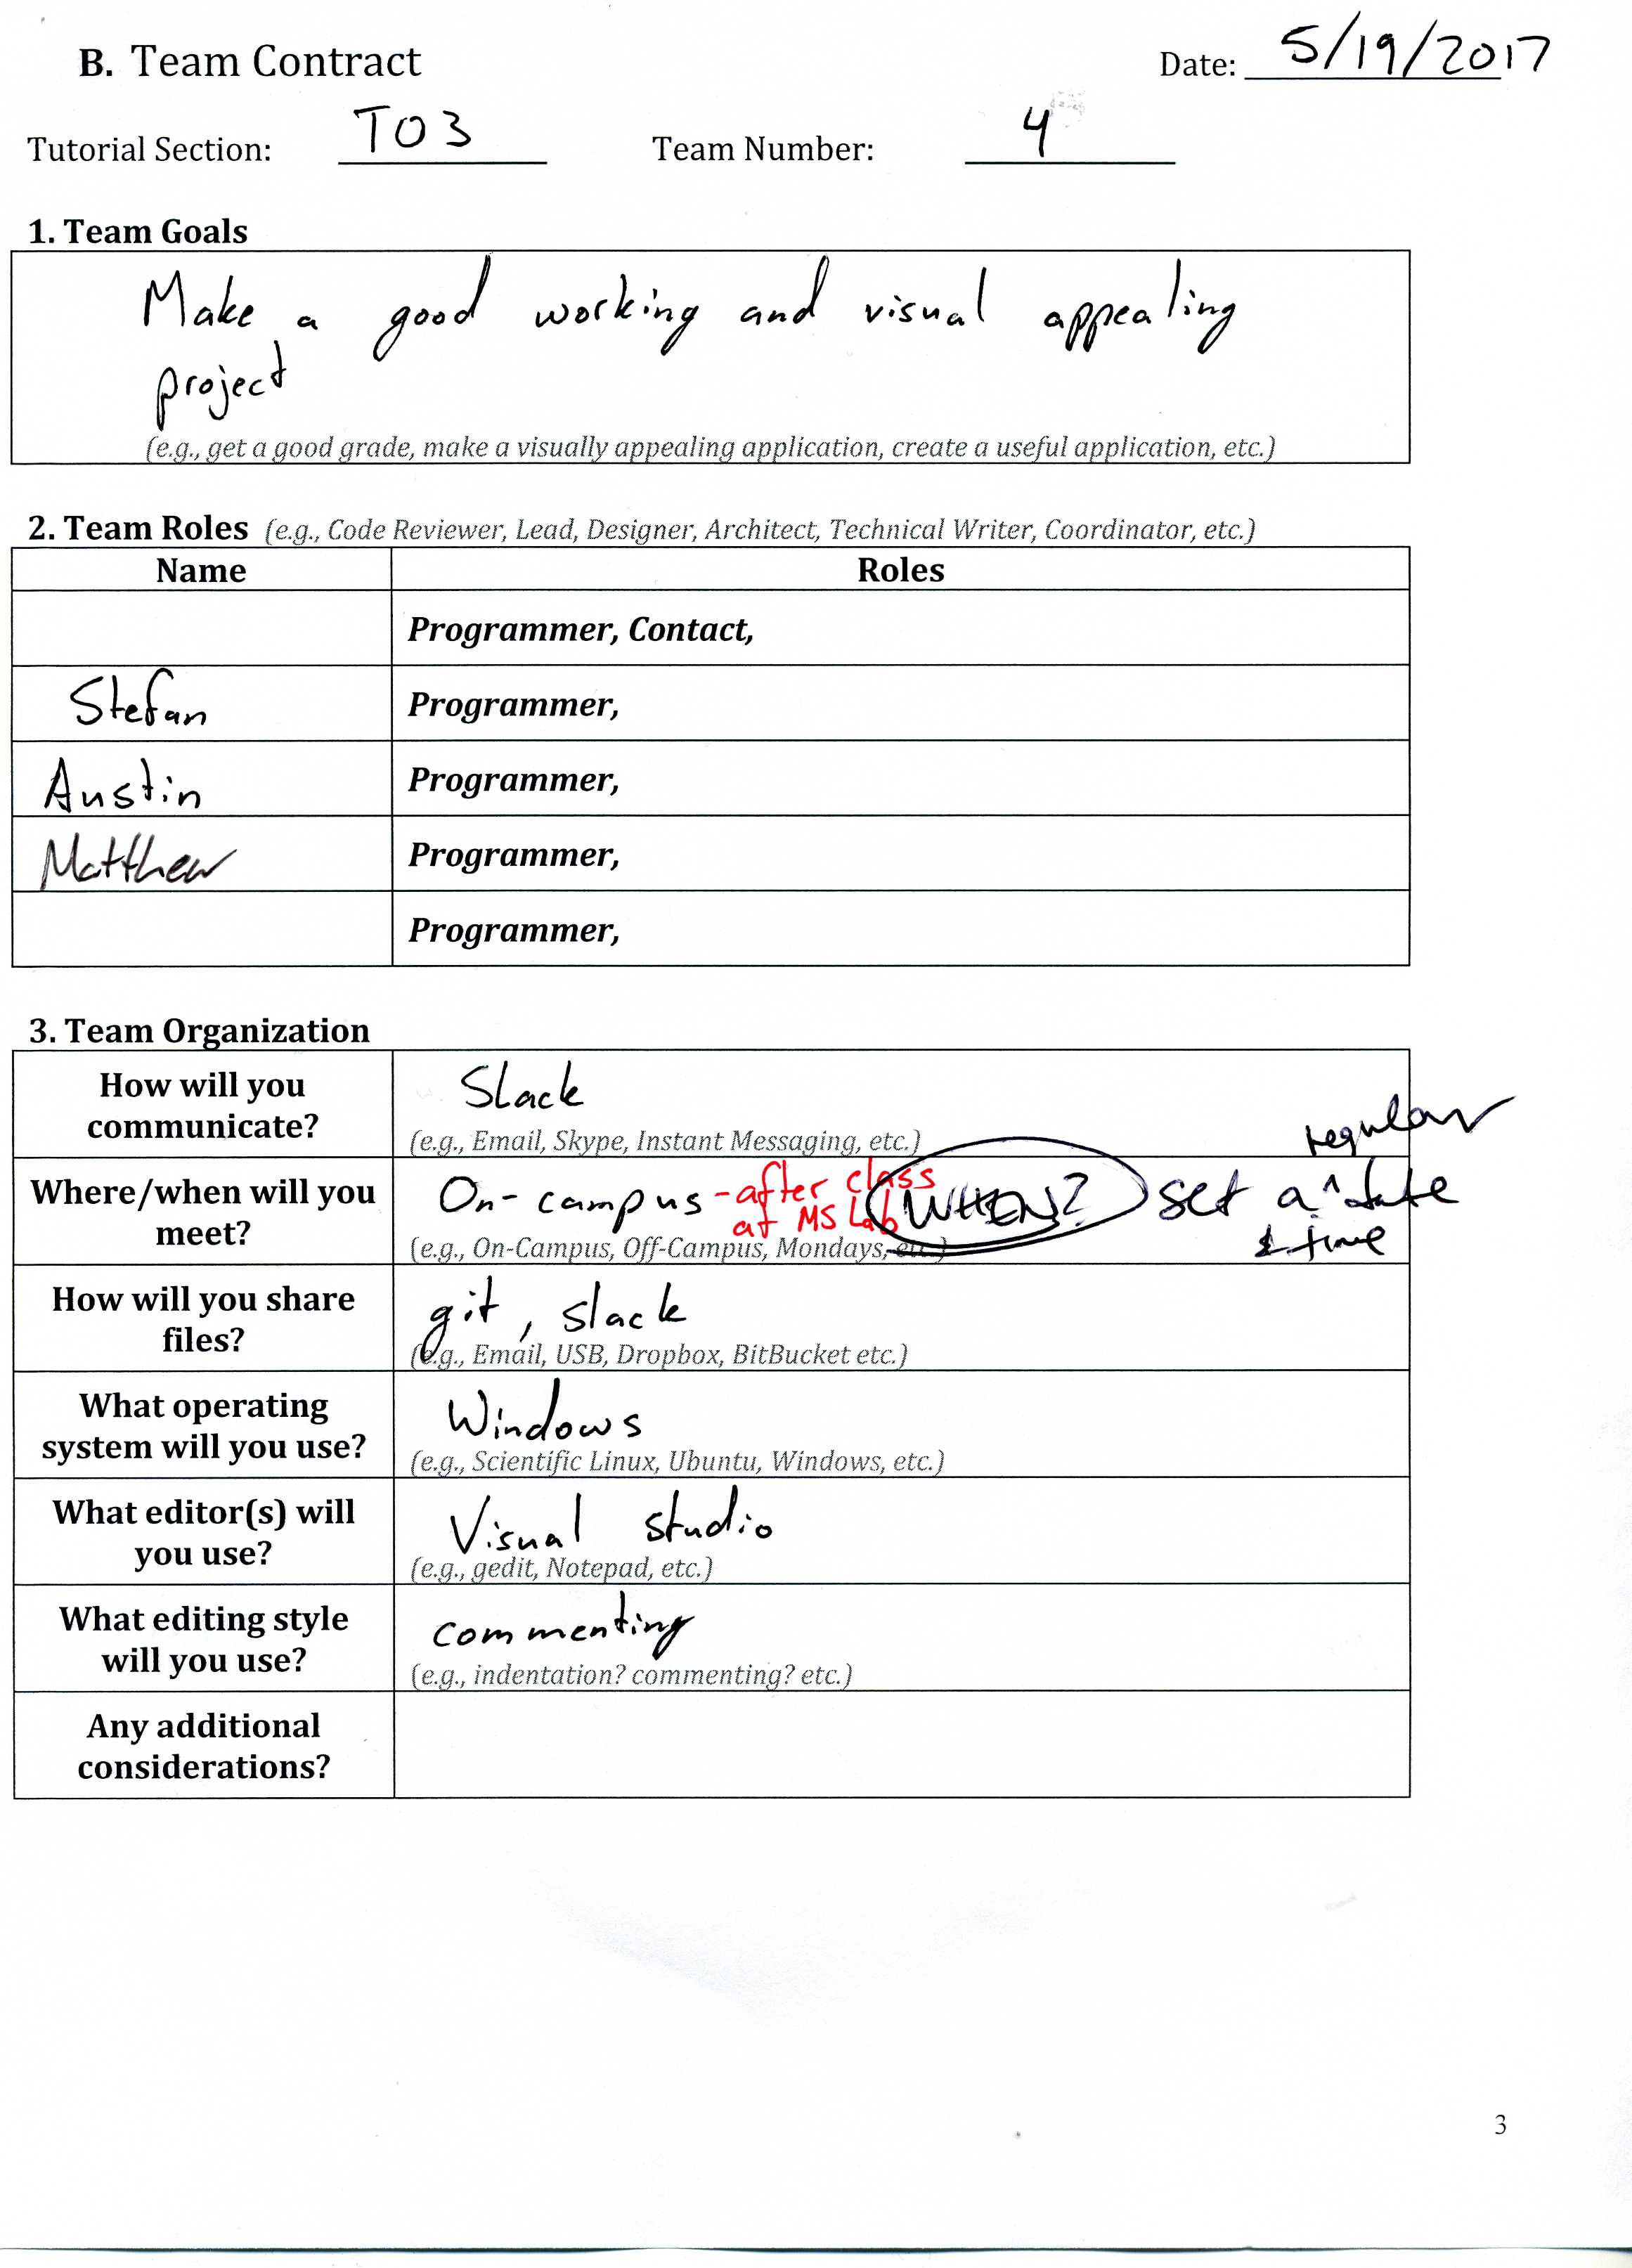 B. Team Contract Date: 5/19/2017
Tutorial Section: T03 Team Number: 4
1. Team Goals
Make a good working and visual appealing
project
(e.g., get a good grade, make a visually appealing application, create a useful application, etc.)
2. Team Roles (e.g., Code Reviewer, Lead, Designer, Architect, Technical Writer, Coordinator, etc.)
Name Roles
Programmer, Contact,
Stefan Programmer,
Austin Programmer,
Matthew Programmer,
Programmer,
3. Team Organization
How will you
communicate?
Slack
(e.g., Email, Skype, Instant Messaging, etc.)
Where/when will you
meet?
On-campus - after class
at MS Lab
WHEN? set a ^ date
regular
& time
(e.g., On-Campus, Off-Campus, Mondays, etc.)
How will you share
files?
git, slack
(e.g., Email, USB, Dropbox, BitBucket etc.)
What operating
system will you use?
Windows
(e.g., Scientific Linux, Ubuntu, Windows, etc.)
What editor(s) will
you use?
Visual studio
(e.g., gedit, Notepad, etc.)
What editing style
will you use?
commenting
(e.g., indentation? commenting? etc.)
Any additional
considerations?
3